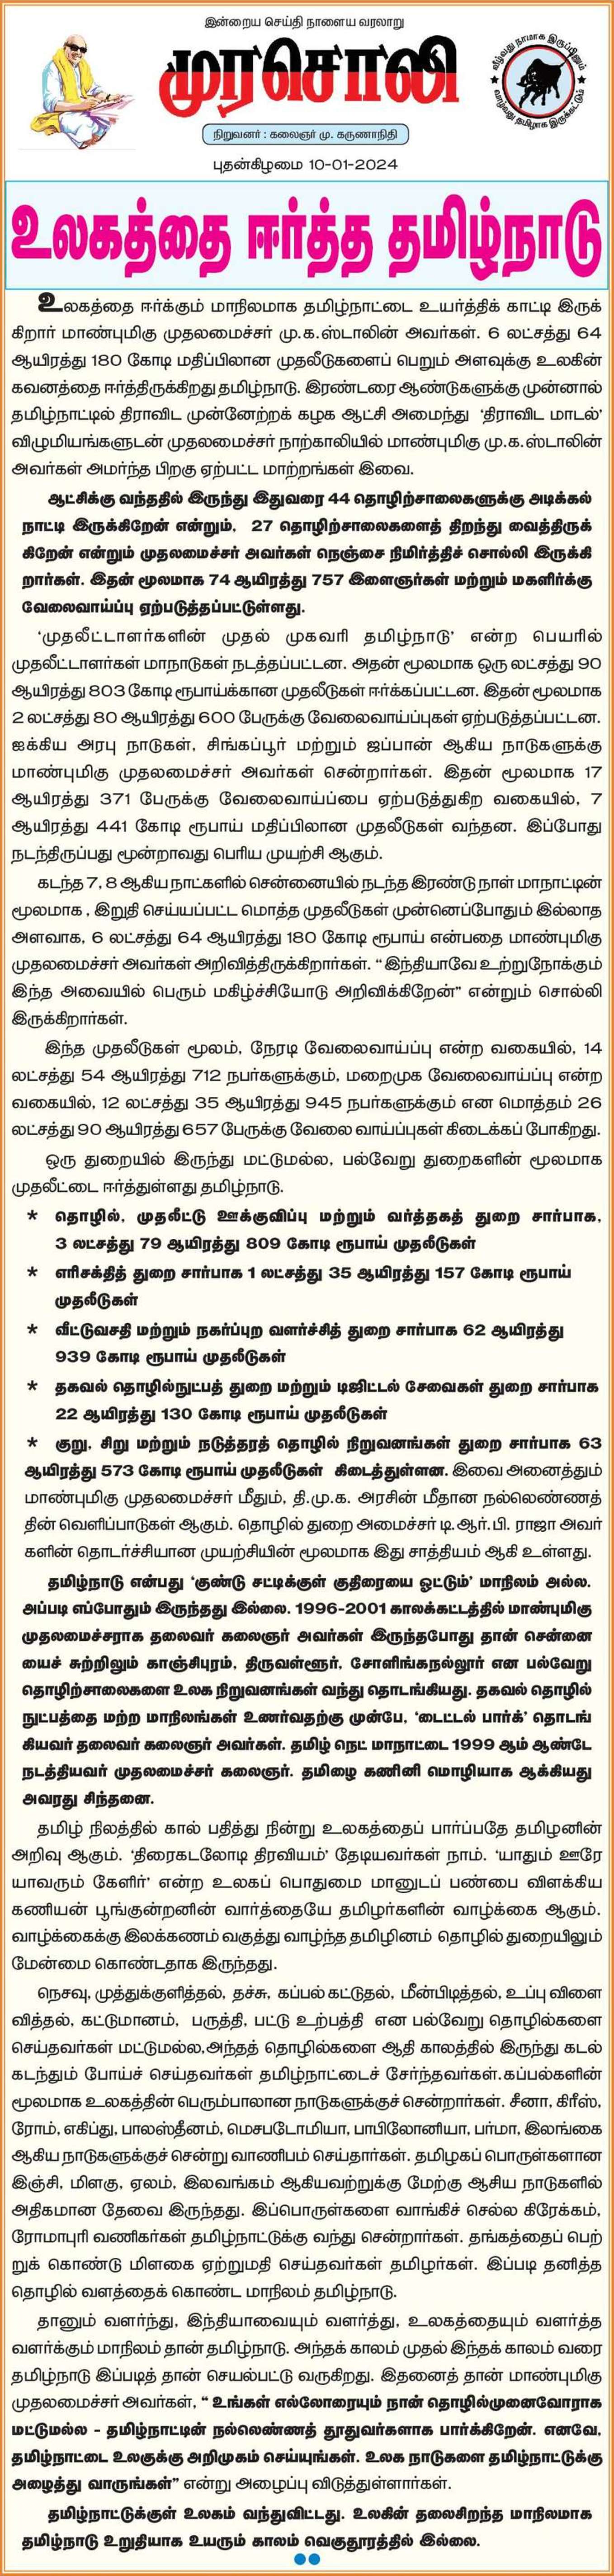 இன்றைய செய்தி நாளைய வரலாறு
முரசொலி
வீழ்வது நாமாக இருப்பினும்
வாழ்வது தமிழாக இருக்கட்டும்
நிறுவனர் : கலைஞர் மு. கருணாநிதி
புதன்கிழமை 10-01-2024
உலகத்தை ஈர்த்த தமிழ்நாடு
உலகத்தை ஈர்க்கும் மாநிலமாக தமிழ்நாட்டை உயர்த்திக் காட்டி இருக்
கிறார் மாண்புமிகு முதலமைச்சர் மு.க.ஸ்டாலின் அவர்கள். 6 லட்சத்து 64
ஆயிரத்து 180 கோடி மதிப்பிலான முதலீடுகளைப் பெறும் அளவுக்கு உலகின்
கவனத்தை ஈர்த்திருக்கிறது தமிழ்நாடு. இரண்டரை ஆண்டுகளுக்கு முன்னால்
தமிழ்நாட்டில் திராவிட முன்னேற்றக் கழக ஆட்சி அமைந்து ‘திராவிட மாடல்’
விழுமியங்களுடன் முதலமைச்சர் நாற்காலியில் மாண்புமிகு மு.க.ஸ்டாலின்
அவர்கள் அமர்ந்த பிறகு ஏற்பட்ட மாற்றங்கள் இவை.
ஆட்சிக்கு வந்ததில் இருந்து இதுவரை 44 தொழிற்சாலைகளுக்கு அடிக்கல்
நாட்டி இருக்கிறேன் என்றும், 27 தொழிற்சாலைகளைத் திறந்து வைத்திருக்
கிறேன் என்றும் முதலமைச்சர் அவர்கள் நெஞ்சை நிமிர்த்திச் சொல்லி இருக்கி
றார்கள். இதன் மூலமாக 74 ஆயிரத்து 757 இளைஞர்கள் மற்றும் மகளிர்க்கு
வேலைவாய்ப்பு ஏற்படுத்தப்பட்டுள்ளது.
‘முதலீட்டாளர்களின் முதல் முகவரி தமிழ்நாடு’ என்ற பெயரில்
முதலீட்டாளர்கள் மாநாடுகள் நடத்தப்பட்டன. அதன் மூலமாக ஒரு லட்சத்து 90
ஆயிரத்து 803 கோடி ரூபாய்க்கான முதலீடுகள் ஈர்க்கப்பட்டன. இதன் மூலமாக
2 லட்சத்து 80 ஆயிரத்து 600 பேருக்கு வேலைவாய்ப்புகள் ஏற்படுத்தப்பட்டன.
ஐக்கிய அரபு நாடுகள், சிங்கப்பூர் மற்றும் ஜப்பான் ஆகிய நாடுகளுக்கு
மாண்புமிகு முதலமைச்சர் அவர்கள் சென்றார்கள். இதன் மூலமாக 17
ஆயிரத்து 371 பேருக்கு வேலைவாய்ப்பை ஏற்படுத்துகிற வகையில், 7
ஆயிரத்து 441 கோடி ரூபாய் மதிப்பிலான முதலீடுகள் வந்தன. இப்போது
நடந்திருப்பது மூன்றாவது பெரிய முயற்சி ஆகும்.
கடந்த 7, 8 ஆகிய நாட்களில் சென்னையில் நடந்த இரண்டு நாள் மாநாட்டின்
மூலமாக , இறுதி செய்யப்பட்ட மொத்த முதலீடுகள் முன்னெப்போதும் இல்லாத
அளவாக, 6 லட்சத்து 64 ஆயிரத்து 180 கோடி ரூபாய் என்பதை மாண்புமிகு
முதலமைச்சர் அவர்கள் அறிவித்திருக்கிறார்கள். “இந்தியாவே உற்றுநோக்கும்
இந்த அவையில் பெரும் மகிழ்ச்சியோடு அறிவிக்கிறேன்” என்றும் சொல்லி
இருக்கிறார்கள்.
இந்த முதலீடுகள் மூலம், நேரடி வேலைவாய்ப்பு என்ற வகையில், 14
லட்சத்து 54 ஆயிரத்து 712 நபர்களுக்கும், மறைமுக வேலைவாய்ப்பு என்ற
வகையில், 12 லட்சத்து 35 ஆயிரத்து 945 நபர்களுக்கும் என மொத்தம் 26
லட்சத்து 90 ஆயிரத்து 657 பேருக்கு வேலை வாய்ப்புகள் கிடைக்கப் போகிறது.
ஒரு துறையில் இருந்து மட்டுமல்ல, பல்வேறு துறைகளின் மூலமாக
முதலீட்டை ஈர்த்துள்ளது தமிழ்நாடு.
* தொழில், முதலீட்டு ஊக்குவிப்பு மற்றும் வர்த்தகத் துறை சார்பாக,
3 லட்சத்து 79 ஆயிரத்து 809 கோடி ரூபாய் முதலீடுகள்
* எரிசக்தித் துறை சார்பாக 1 லட்சத்து 35 ஆயிரத்து 157 கோடி ரூபாய்
முதலீடுகள்
* வீட்டுவசதி மற்றும் நகர்ப்புற வளர்ச்சித் துறை சார்பாக 62 ஆயிரத்து
939 கோடி ரூபாய் முதலீடுகள்
* தகவல் தொழில்நுட்பத் துறை மற்றும் டிஜிட்டல் சேவைகள் துறை சார்பாக
22 ஆயிரத்து 130 கோடி ரூபாய் முதலீடுகள்
* குறு, சிறு மற்றும் நடுத்தரத் தொழில் நிறுவனங்கள் துறை சார்பாக 63
ஆயிரத்து 573 கோடி ரூபாய் முதலீடுகள் கிடைத்துள்ளன. இவை அனைத்தும்
மாண்புமிகு முதலமைச்சர் மீதும், தி.மு.க. அரசின் மீதான நல்லெண்ணத்
தின் வெளிப்பாடுகள் ஆகும். தொழில் துறை அமைச்சர் டி.ஆர்.பி. ராஜா அவர்
களின் தொடர்ச்சியான முயற்சியின் மூலமாக இது சாத்தியம் ஆகி உள்ளது.
தமிழ்நாடு என்பது ‘குண்டு சட்டிக்குள் குதிரையை ஓட்டும்’ மாநிலம் அல்ல.
அப்படி எப்போதும் இருந்தது இல்லை. 1996-2001 காலக்கட்டத்தில் மாண்புமிகு
முதலமைச்சராக தலைவர் கலைஞர் அவர்கள் இருந்தபோது தான் சென்னை
யைச் சுற்றிலும் காஞ்சிபுரம், திருவள்ளூர், சோளிங்கநல்லூர் என பல்வேறு
தொழிற்சாலைகளை உலக நிறுவனங்கள் வந்து தொடங்கியது. தகவல் தொழில்
நுட்பத்தை மற்ற மாநிலங்கள் உணர்வதற்கு முன்பே, ‘டைட்டல் பார்க்’ தொடங்
கியவர் தலைவர் கலைஞர் அவர்கள். தமிழ் நெட் மாநாட்டை 1999 ஆம் ஆண்டே
நடத்தியவர் முதலமைச்சர் கலைஞர். தமிழை கணினி மொழியாக ஆக்கியது
அவரது சிந்தனை.
தமிழ் நிலத்தில் கால் பதித்து நின்று உலகத்தைப் பார்ப்பதே தமிழனின்
அறிவு ஆகும். ‘திரைகடலோடி திரவியம்’ தேடியவர்கள் நாம். ‘யாதும் ஊரே
யாவரும் கேளிர்’ என்ற உலகப் பொதுமை மானுடப் பண்பை விளக்கிய
கணியன் பூங்குன்றனின் வார்த்தையே தமிழர்களின் வாழ்க்கை ஆகும்.
வாழ்க்கைக்கு இலக்கணம் வகுத்து வாழ்ந்த தமிழினம் தொழில் துறையிலும்
மேன்மை கொண்டதாக இருந்தது.
நெசவு, முத்துக்குளித்தல், தச்சு, கப்பல் கட்டுதல், மீன்பிடித்தல், உப்பு விளை
வித்தல், கட்டுமானம், பருத்தி, பட்டு உற்பத்தி என பல்வேறு தொழில்களை
செய்தவர்கள் மட்டுமல்ல,அந்தத் தொழில்களை ஆதி காலத்தில் இருந்து கடல்
கடந்தும் போய்ச் செய்தவர்கள் தமிழ்நாட்டைச் சேர்ந்தவர்கள்.கப்பல்களின்
மூலமாக உலகத்தின் பெரும்பாலான நாடுகளுக்குச் சென்றார்கள். சீனா, கிரீஸ்,
ரோம், எகிப்து, பாலஸ்தீனம், மெசபடோமியா, பாபிலோனியா, பர்மா, இலங்கை
ஆகிய நாடுகளுக்குச் சென்று வாணிபம் செய்தார்கள். தமிழகப் பொருள்களான
இஞ்சி, மிளகு, ஏலம், இலவங்கம் ஆகியவற்றுக்கு மேற்கு ஆசிய நாடுகளில்
அதிகமான தேவை இருந்தது. இப்பொருள்களை வாங்கிச் செல்ல கிரேக்கம்,
ரோமாபுரி வணிகர்கள் தமிழ்நாட்டுக்கு வந்து சென்றார்கள். தங்கத்தைப் பெற்
றுக் கொண்டு மிளகை ஏற்றுமதி செய்தவர்கள் தமிழர்கள். இப்படி தனித்த
தொழில் வளத்தைக் கொண்ட மாநிலம் தமிழ்நாடு.
தானும் வளர்ந்து, இந்தியாவையும் வளர்த்து, உலகத்தையும் வளர்த்த
வளர்க்கும் மாநிலம் தான் தமிழ்நாடு. அந்தக் காலம் முதல் இந்தக் காலம் வரை
தமிழ்நாடு இப்படித் தான் செயல்பட்டு வருகிறது. இதனைத் தான் மாண்புமிகு
முதலமைச்சர் அவர்கள், “ உங்கள் எல்லோரையும் நான் தொழில்முனைவோராக
மட்டுமல்ல - தமிழ்நாட்டின் நல்லெண்ணத் தூதுவர்களாக பார்க்கிறேன். எனவே,
தமிழ்நாட்டை உலகுக்கு அறிமுகம் செய்யுங்கள். உலக நாடுகளை தமிழ்நாட்டுக்கு
அழைத்து வாருங்கள்” என்று அழைப்பு விடுத்துள்ளார்கள்.
தமிழ்நாட்டுக்குள் உலகம் வந்துவிட்டது. உலகின் தலைசிறந்த மாநிலமாக
தமிழ்நாடு உறுதியாக உயரும் காலம் வெகுதூரத்தில் இல்லை.